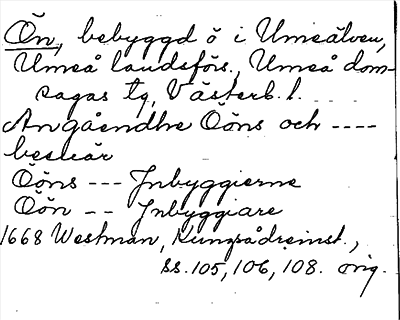 Ön, bebyggd ö i Umeälven,
Umeå landsförs., Umeå dom-
sagas tg, Västerb. l.
Angåendhe Öðns och ----
besuär
Öðns --- Inbyggierne
Öðn -- Inbyggiare
1668 Westman, Kungsådreinst.,
ss. 105, 106, 108. orig.